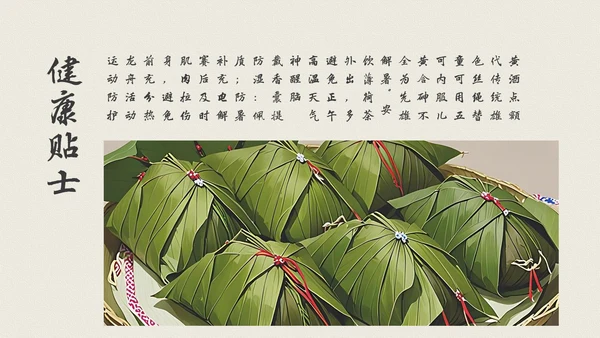 健康贴士
运动防护
龙舟活动
前充分热
身，避免
肌肉拉伤
赛后及时
补充电解
质；防暑
防湿：佩
戴香囊提
神醒脑
高温天气
避免正午
外出，多
饮薄荷茶
解暑。安
全为先雄
黄含砷不
可内服儿
童可用五
色丝绳替
代传统雄
黄酒点额